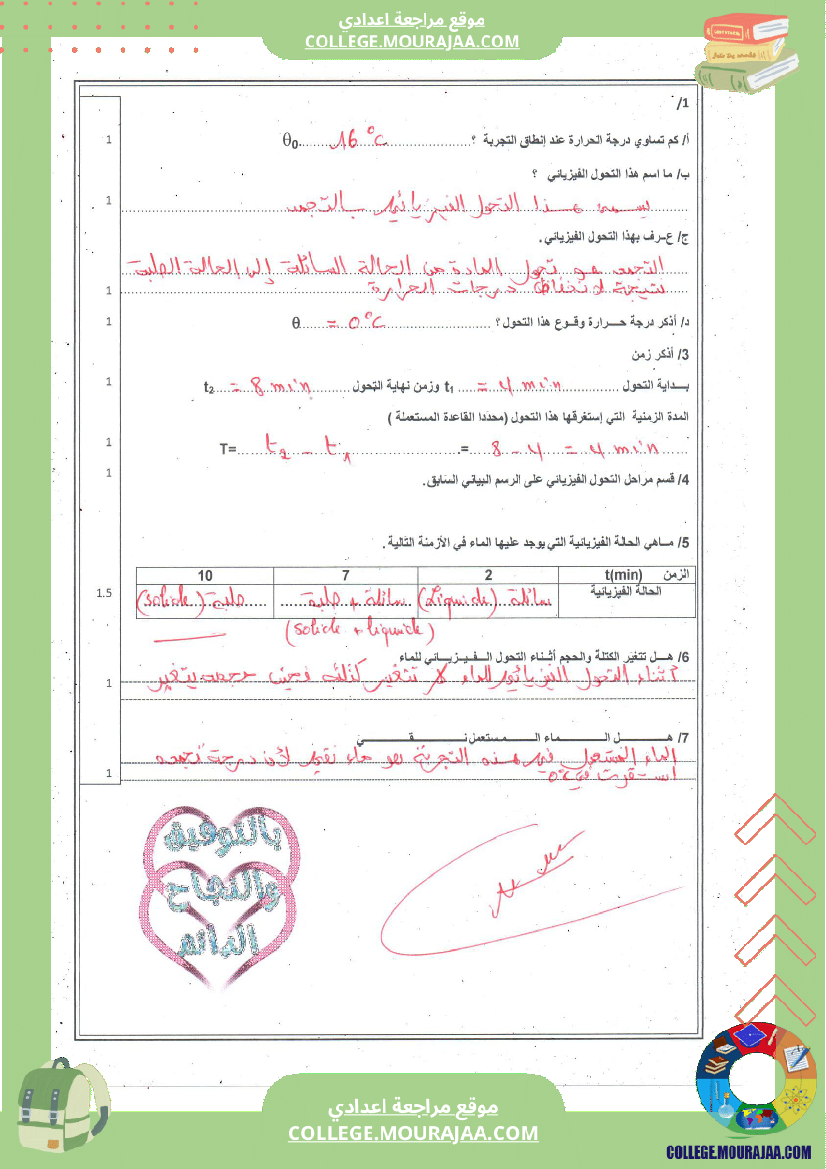 موقع مراجعة اعدادي
COLLEGE.MOURAJAA.COM
1/
أ/ كم تساوي درجة الحرارة عند إنطلاق التجربة ؟ 16°c θ0
1
ب/ ما اسم هذا التحول الفيزيائي ؟
يسمى هذا التحول الفيزيائي بالتجمد
1
ج/ عـرف بهذا التحول الفيزيائي.
التجمد هو تحول المادة من الحالة السائلة إلى الحالة الصلبة
نتيجة لانخفاض درجات الحرارة
1
د/ أذكر درجة حـــرارة وقــوع هذا التحول؟ θ = 0°c
1
3/ أذكر زمن
بـــداية التحول t1 = 4 min وزمن نهاية التحول t2 = 8 min
1
المدة الزمنية التي إستغرقها هذا التحول (محددا القاعدة المستعملة )
T= t2 - t1 = 8 - 4 = 4 min
1
4/ قسم مراحل التحول الفيزيائي على الرسم البياني السابق.
1
5/ مـاهي الحالة الفيزيائية التي يوجد عليها الماء في الأزمنة التالية.
الزمن t(min) 2 7 10
الحالة الفيزيائية سائلة (Liquide) سائلة + صلبة صلبة (solide)
(solide + liquide)
1.5
6/ هــل تتغير الكتلة والحجم أثـناء التحول الـفـيـزيـــائي للماء
أثناء التحول الفيزيائي للماء لا تتغير كتلته في حين حجمه يتغير
1
7/ هـــــل المـــــاء المـــــستعمل نـــــقـــــي
الماء المستعمل في هذه التجربة هو ماء نقي لأن درجة تجمده
استقرت في 0°
1
بالتوفيق
والنجاح
الدائم
موقع مراجعة اعدادي
COLLEGE.MOURAJAA.COM
COLLEGE.MOURAJAA.COM